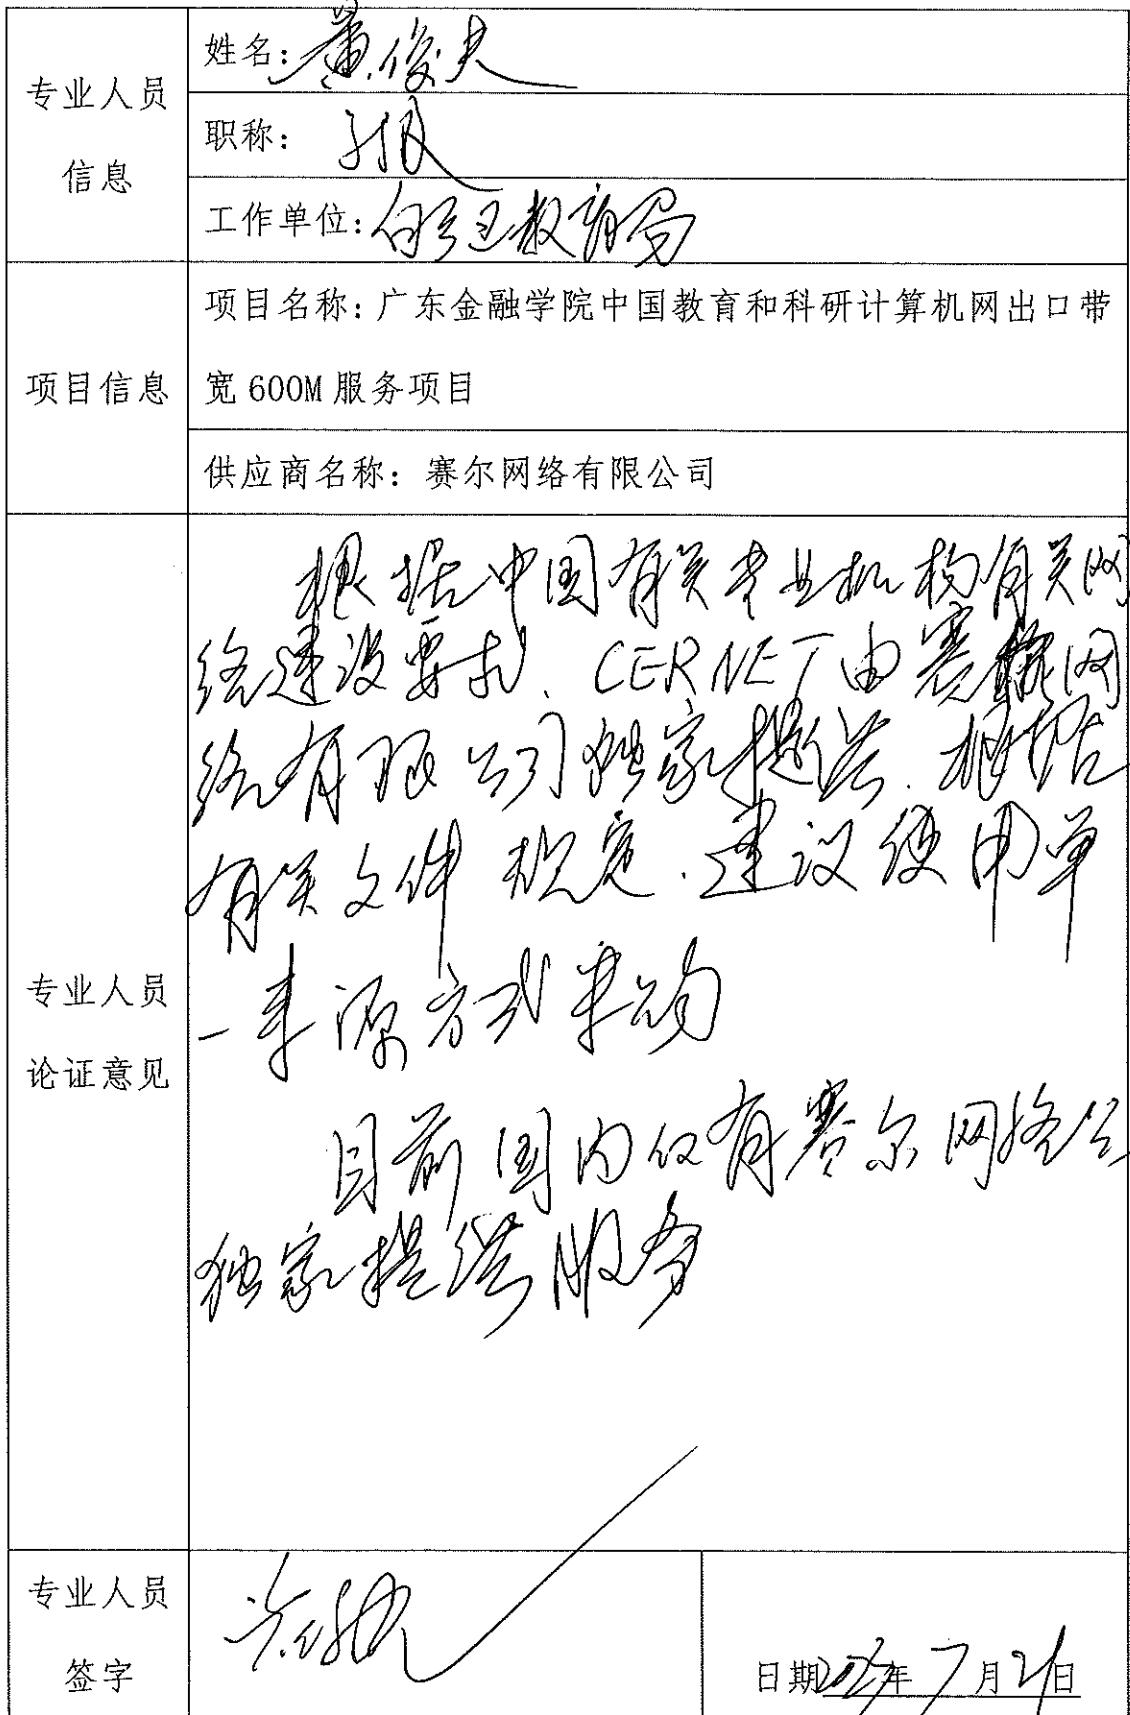 专业人员
信息
姓名：黄俊夫
职称：
工作单位：白云区教育局
项目信息
项目名称：广东金融学院中国教育和科研计算机网出口带
宽 600M 服务项目
供应商名称：赛尔网络有限公司
专业人员
论证意见
根据中国有关专业机构有关网
络建设要求、CERNET由赛尔网
络有限公司独家提供.根据
有关文件规定.建议使用单
一来源方式采购
目前国内仅有赛尔网络公
独家提供服务
专业人员
签字
日期 年7月21日